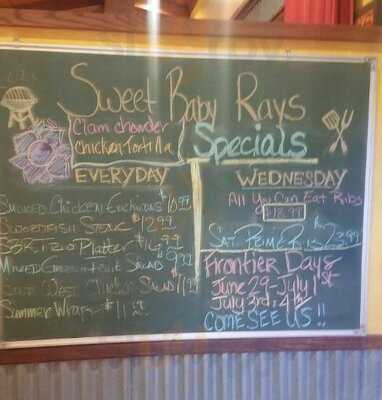 Sweet Baby Rays
Specials
Clam chowder
Chicken Tortilla
EVERYDAY
Smoked Chicken Enchiladas $10.99
Swordfish Steak $12.99
SBR Platter $16.99
Mixed Green Salad $9.99
South West Chicken Salad 11.99
Summer Wrap $11
WEDNESDAY
All You Can Eat Ribs
$18.99
Sat. Prime Rib $23.99
Frontier Days
June 29 - July 1st
July 3rd, 4th
COME SEE US!!